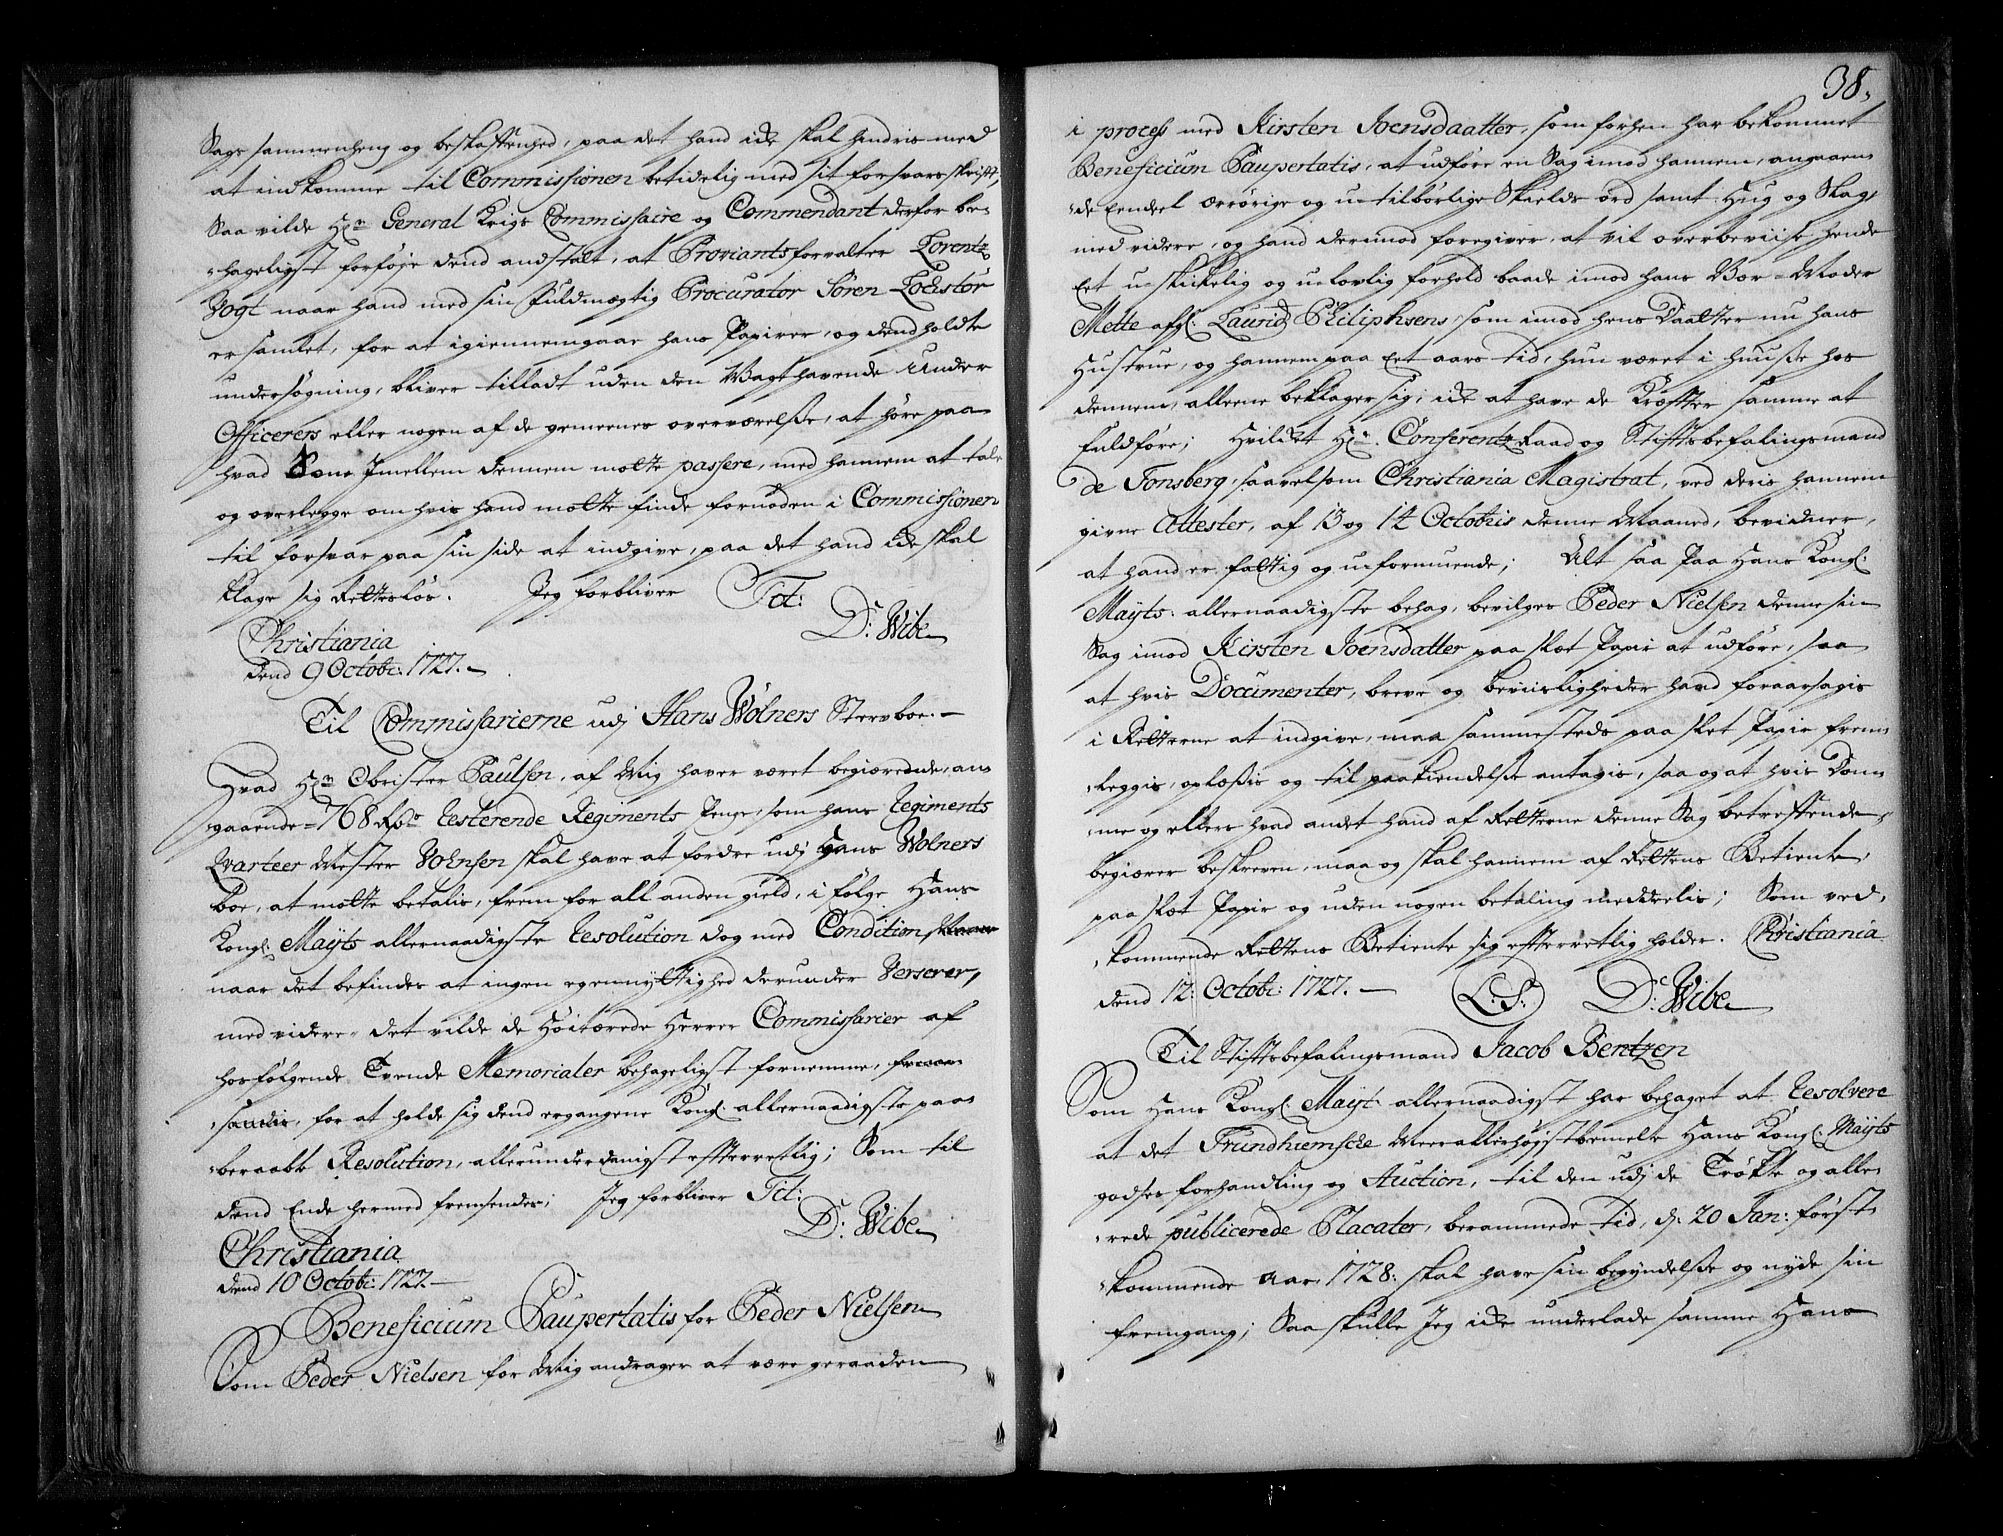 Sags sammenheng og beskaffenhed, paa det hand icke skal hindris med
at indkomme til Commissionen betidelig med sit forsvars skrifft,
Saa vilde Hr: General Krigs Commissaire og Commendant derfor be-
hageligst forføje dend anstalt, at Proviantsforvalter Lorentz
Vogt naar hand med sin Fuldmegtig Procurator Søren Lochstør
er samlet, for at igiennemgaae hans Papirer, og dend holdte
undersøgning, bliver tilladt uden den Wagthavende Under
Officerers eller nogen af de gemeenes overværelsse, at høre paa
hvad Imellem dennem motte passere, med hannem at tale
og overlegge om hvis hand motte finde fornøden i Commissionen
til forsvar paa sin side at indgive, paa det hand icke skal
klage sig Rettesløs. Jeg forbliver Tct:
D: Wibe
Christiania
dend 9 Octobr: 1727. -
Til Commissarierne udj Hans Wølners Sterboe. -
Hvad Hr: Obrister Paulsen, af Mig haver været begiærende, an-
gaaende 768 Rdr resterende Regiments Penge, som hans Regiments
Qvarteer Mester Johnsen skal have at fordre udj Hans Wølners
boe, at motte betalis, frem for all anden gield, i følge Hans
Kongl: Mayts allernaadigste Resolution dog med Condition
naar det befindes at ingen egennyttighed derunder Verserer,
med videre det vilde de Høitærede Herrer Commissarier af
hosfølgende Tvende Memorialer behageligst fornemme,
for at holde sig dend ergangene Kongl: allernaadigste paa-
beraabte Resolution, allerunderdanigst efterretlig; Som til
dend Ende hermed fremsendes; Jeg forbliver Tct:
D: Wibe
Christiania
dend 10 Octobr: 1727. -
Beneficium Paupertatis for Peder Nielsen
Som Peder Nielsen for Mig andrager at være geraaden
38.
i process med Kirsten Joensdaatter, som forhen har bekommet
Beneficium Paupertatis, at udføre en Sag imod hannem, angaaen-
de Eendeel ærrørige og utilbørlige Skields ord samt Hug og Slag,
med videre, og hand derimod foregiver, at vil overbeviise hende
Eet uskickelig og ulovlig forhold baade imod hans Vær-Moder
Mette afgl: Laurids Philiphsens, som imod hens Daatter nu hans
Hustrue, og hannem paa Eet aars tid, hun været i huusse hos
dennem, alleene beklager sig, icke at have de Kræffter samme at
fuldføre; Hvilcket Hr: Conferentz Raad og Stiftsbefalingsmand
de Tonsberg, saavelsom Christiania Magistrat, ved deris hannem
givne Attester, af 13 og 14 Octobris denne Maaned, bevidner,
at hand er fattig og uformuende; Alt saa Paa Hans Kongl:
Mayts: allernaadigste behag, bevilges Peder Nielsen denne sin
Sag imod Kirsten Joensdatter paa slet Papir at udføre, saa
at hvis Documenter, breve og beviisligheder hand foraarsagis
i Retterne at indgive, maa sammesteds paa slet Papir frem-
leggis, oplæssis og til paakiendelsse antagis, saa og at hvis Dom-
me og ellers hvad andet hand af Retterne denne Sag betreffende
begiærer beskreven, maa og skal hannem af Rettens Betiente,
paa slet Papir og uden nogen betaling meddeelis; Som ved-
kommende Rettens Betiente sig efterretlig holder. Christiania
dend 12: Octobr: 1727. - L: S: D: Wibe
Til Stiftsbefalingsmand Jacob Bentzen
Som Hans Kongl: Mayt allernaadigst har behaget at Resolvere
at det Trundhiemsche Meerallerhøjstbemelte Hans Kongl: Mayts
godses forhandling og Auction, til den udj de Trøkte og alle-
rede publicerede Placater, berammede tid, d: 20 Jan: først-
kommende aar 1728: skal have sin begyndelsse og nyde sin
fremgang; Saa skulle Jeg icke underlade samme Hans